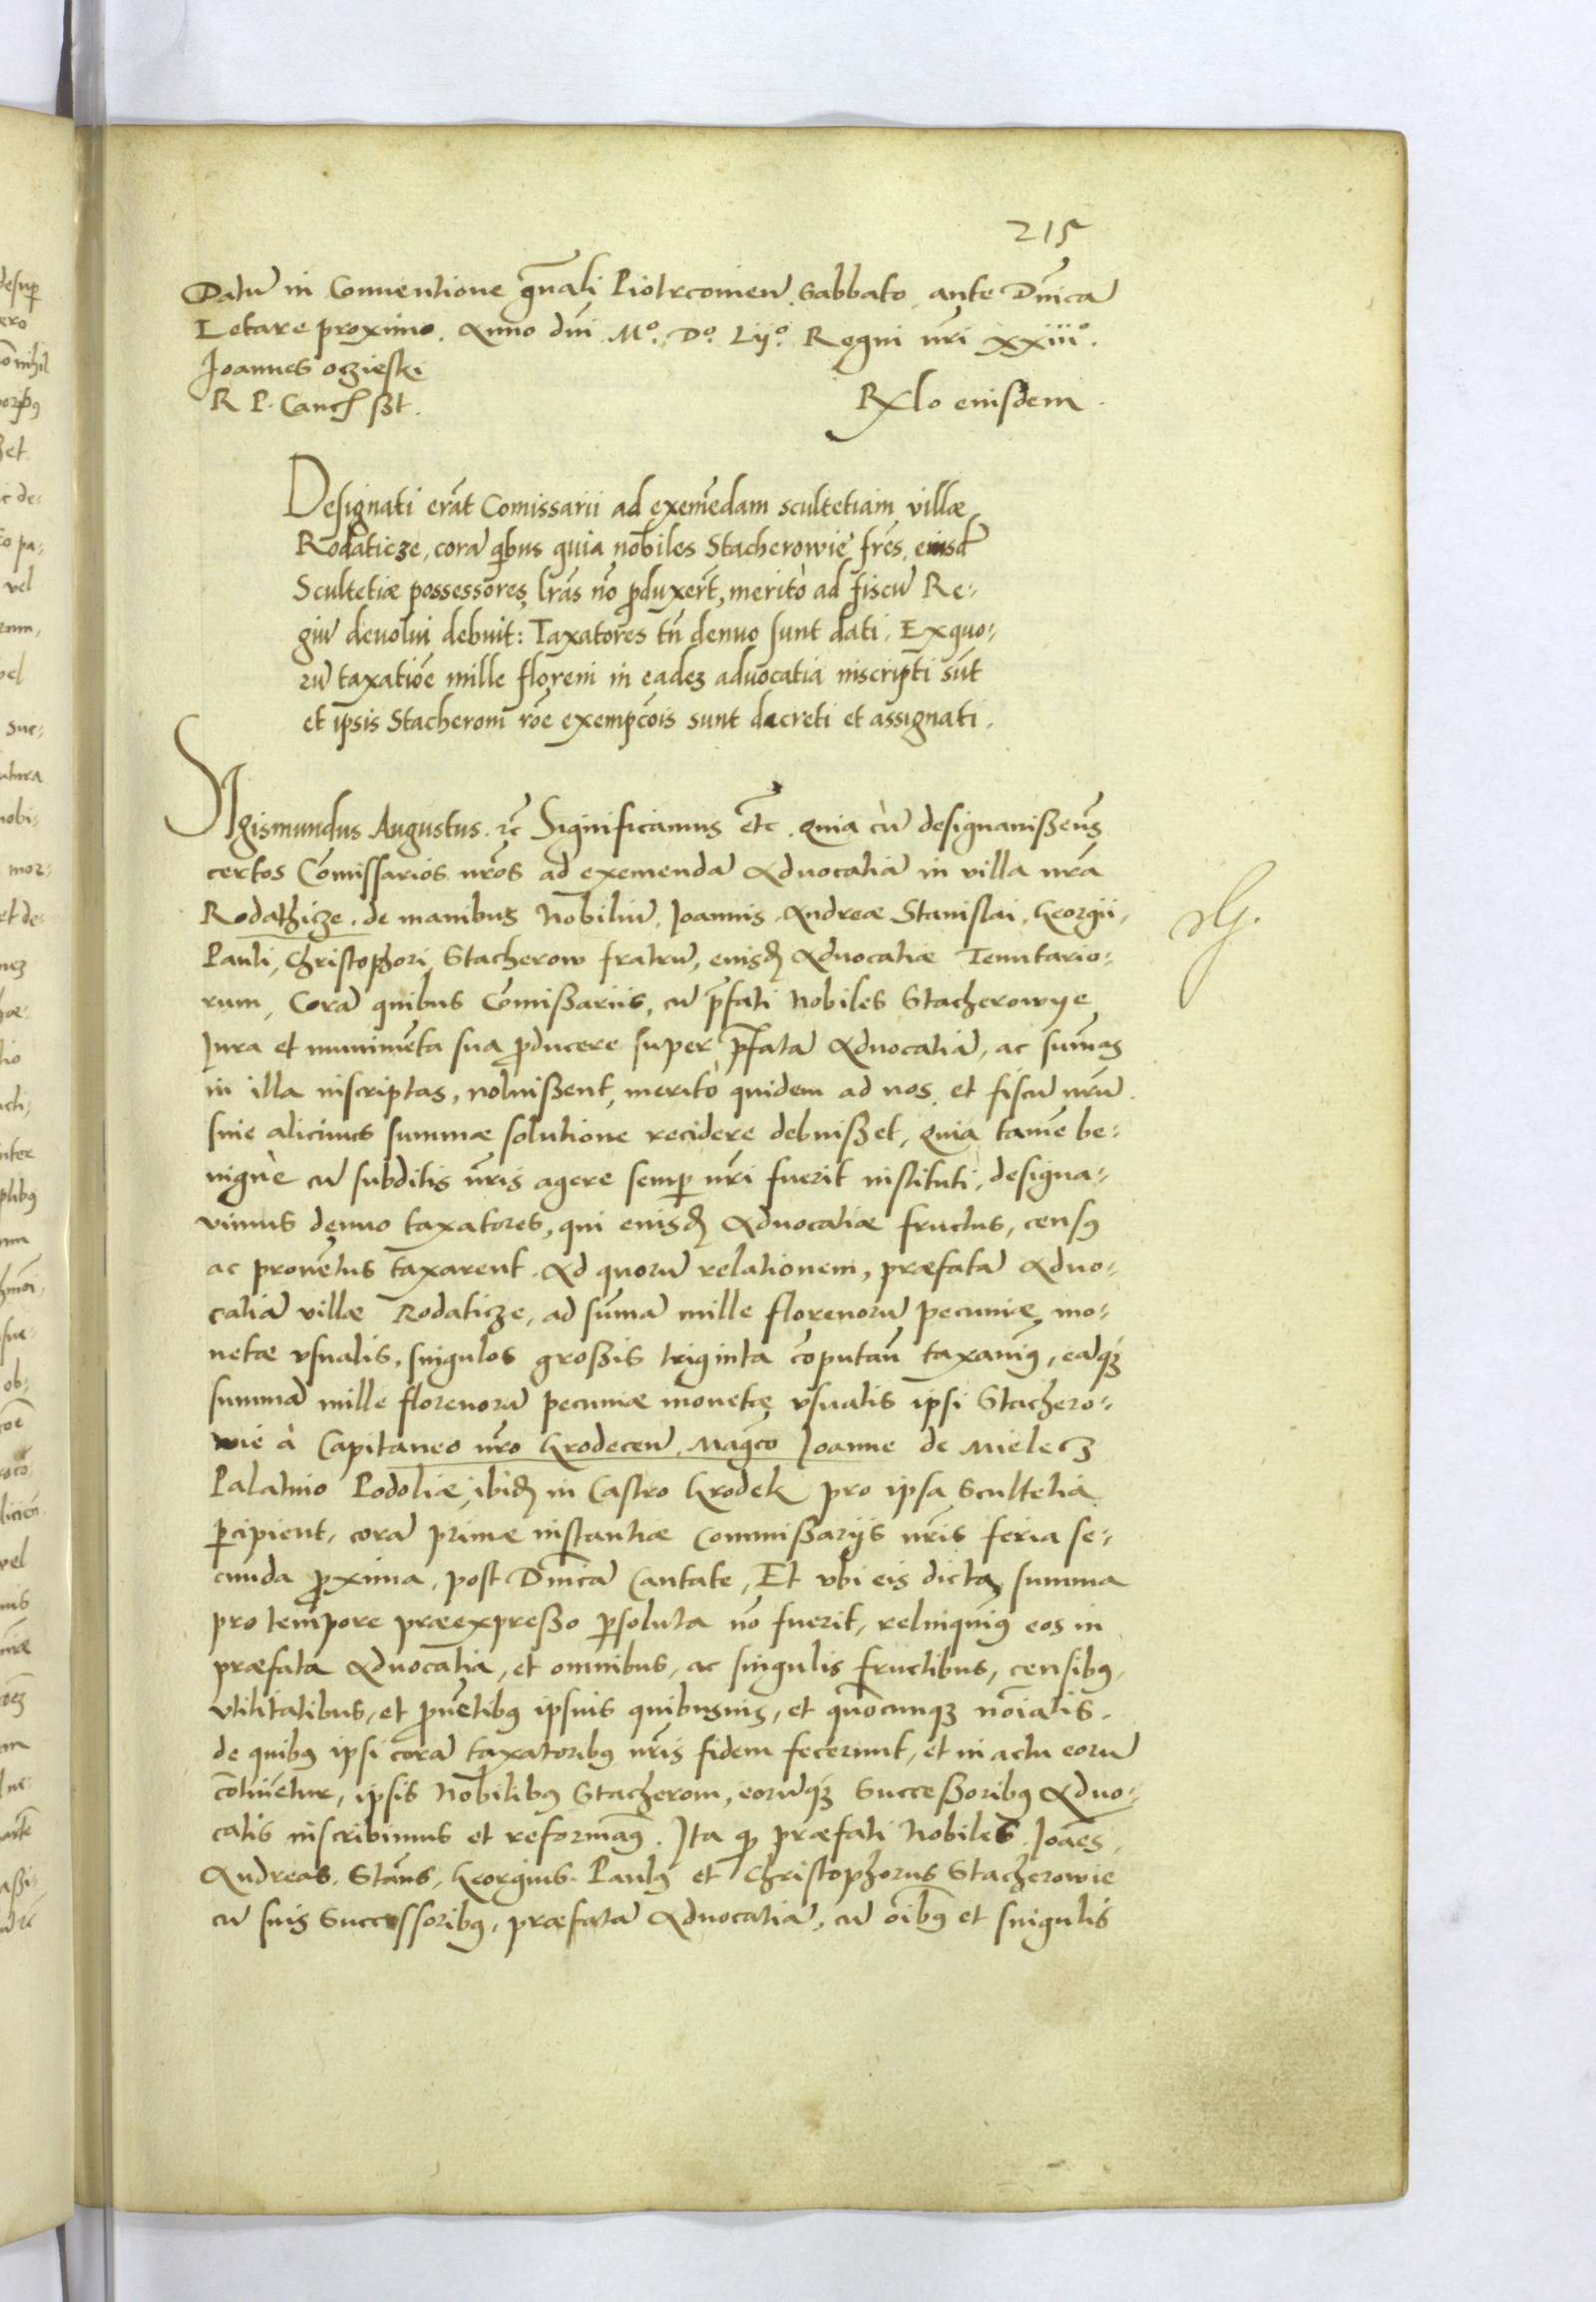 215
Datũ in Conuentione gnãli Piotrcouieñ Sabbato ante Dñicã
Letare proximo. Anno dñi M.º D.º Lijº. Regni nr̃i xxiiiº.
Joannes oczieski
R P. Canc̃ sst.
Rlo eiusdem.
Designati erãt Comissarii ad exemẽdam scultetiam villæ
Rodaticze, corã q̃bus quia nobiles Stacherowie fr̃es, eiusd̃
Scultetiæ possessores lr̃as nõ ꝓduxert̃, meritò ad fiscũ Re-
giũ deuolui debuit: Taxatores tñ denuo sunt dati. Exquo-
rũ taxatiõe mille floreni in eadez aduocatia inscripti sũt
et ipsis Stacherom rõe exempcõis sunt decreti et assignati.
Sigismundus Augustus. rc̃ Significamus etc̃. quia cù designauissem9
certos Cõmissarios nr̃os ad exemendã Aduocatiã in villa nrã
Rodathicze. de manibus Nobiliũ. Joannis. Andreæ Stanislai. Georgii.
Pauli, Christophori, Stacherow fratrũ, eiusd̃ Aduocatiæ Tenutario-
rum, Corã quibus Cõmissariis, cũ p̃fati Nobiles Stacherowye
Jura et munimẽta sua ꝓducere super p̃fatã Aduocatiã, ac sum̃as
in illa inscriptas, noluissent, meritò quidem ad nos, et fiscũ nrũ.
sine alicuius summæ solutione recidere debuisset, quia tamẽ be-
nignè cũ subditis nr̃is agere semp̱ nr̃i fuerit instituti, designa-
uimus denuo taxatores, qui eiusd̃ Aduocatiæ fructus, censꝰ
ac prouẽtus taxarent. Ad quorũ relationem, præfatã Aduo-
catiã villæ Rodaticze, ad sum̃ã mille florenorũ pecuniæ mo-
netæ vsualis, singulos grossis triginta cõputañ taxauimꝰ, eãqꝫ
summã mille florenorũ pecuniæ monetæ vsualis ipsi Stachero-
wie à Capitaneo nr̃o Grodeceñ, Mag̃co Joanne de Mielecz
Palatino Podoliæ, ibid̃ in Castro Grodek pro ipsa Scultetia
p̱cipient, corã primæ instantiæ Commissarijs nr̃is feria se-
cunda ꝓxima, post Dñicã Cantate, Et vbi eis dicta summa
pro tempore præexpresso p̱soluta nõ fuerit, relinquimꝰ eos in
præfata Aduocatia, et omnibus, ac singulis fructibus, censibꝰ,
vtilitatibus, et ꝓuẽtibꝰ ipsius quibusuis, et quocunqꝫ nõiatis.
de quibꝰ ipsi corã taxatoribꝰ nr̃is fidem fecerunt, et in actu eorũ
cõtinẽtur, ipsis Nobilibꝰ Stacherom, eorũqꝫ Successoribꝰ Aduo-
catis inscribimus et reformamꝰ. Ita qꝫ præfati Nobiles. Joães,
Andreas. Stãns, Georgius. Paulꝰ et Christophorus Stacherowie
cũ suis Successoribꝰ, præfatã Aduocatiã, cũ oĩbꝰ et singulis